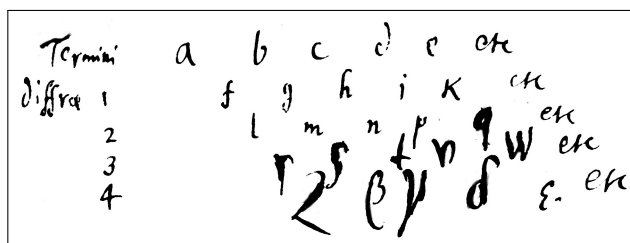 Termini a b c d e etc
diffræ 1 f g h i K etc
2 l m n p q etc
3 r s t v w etc
4 β γ δ ε. etc